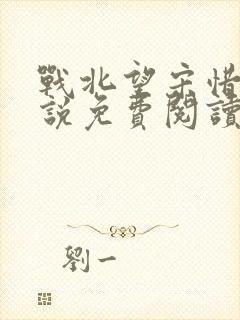 戰北望宋惜
說免費閱讀
劉一